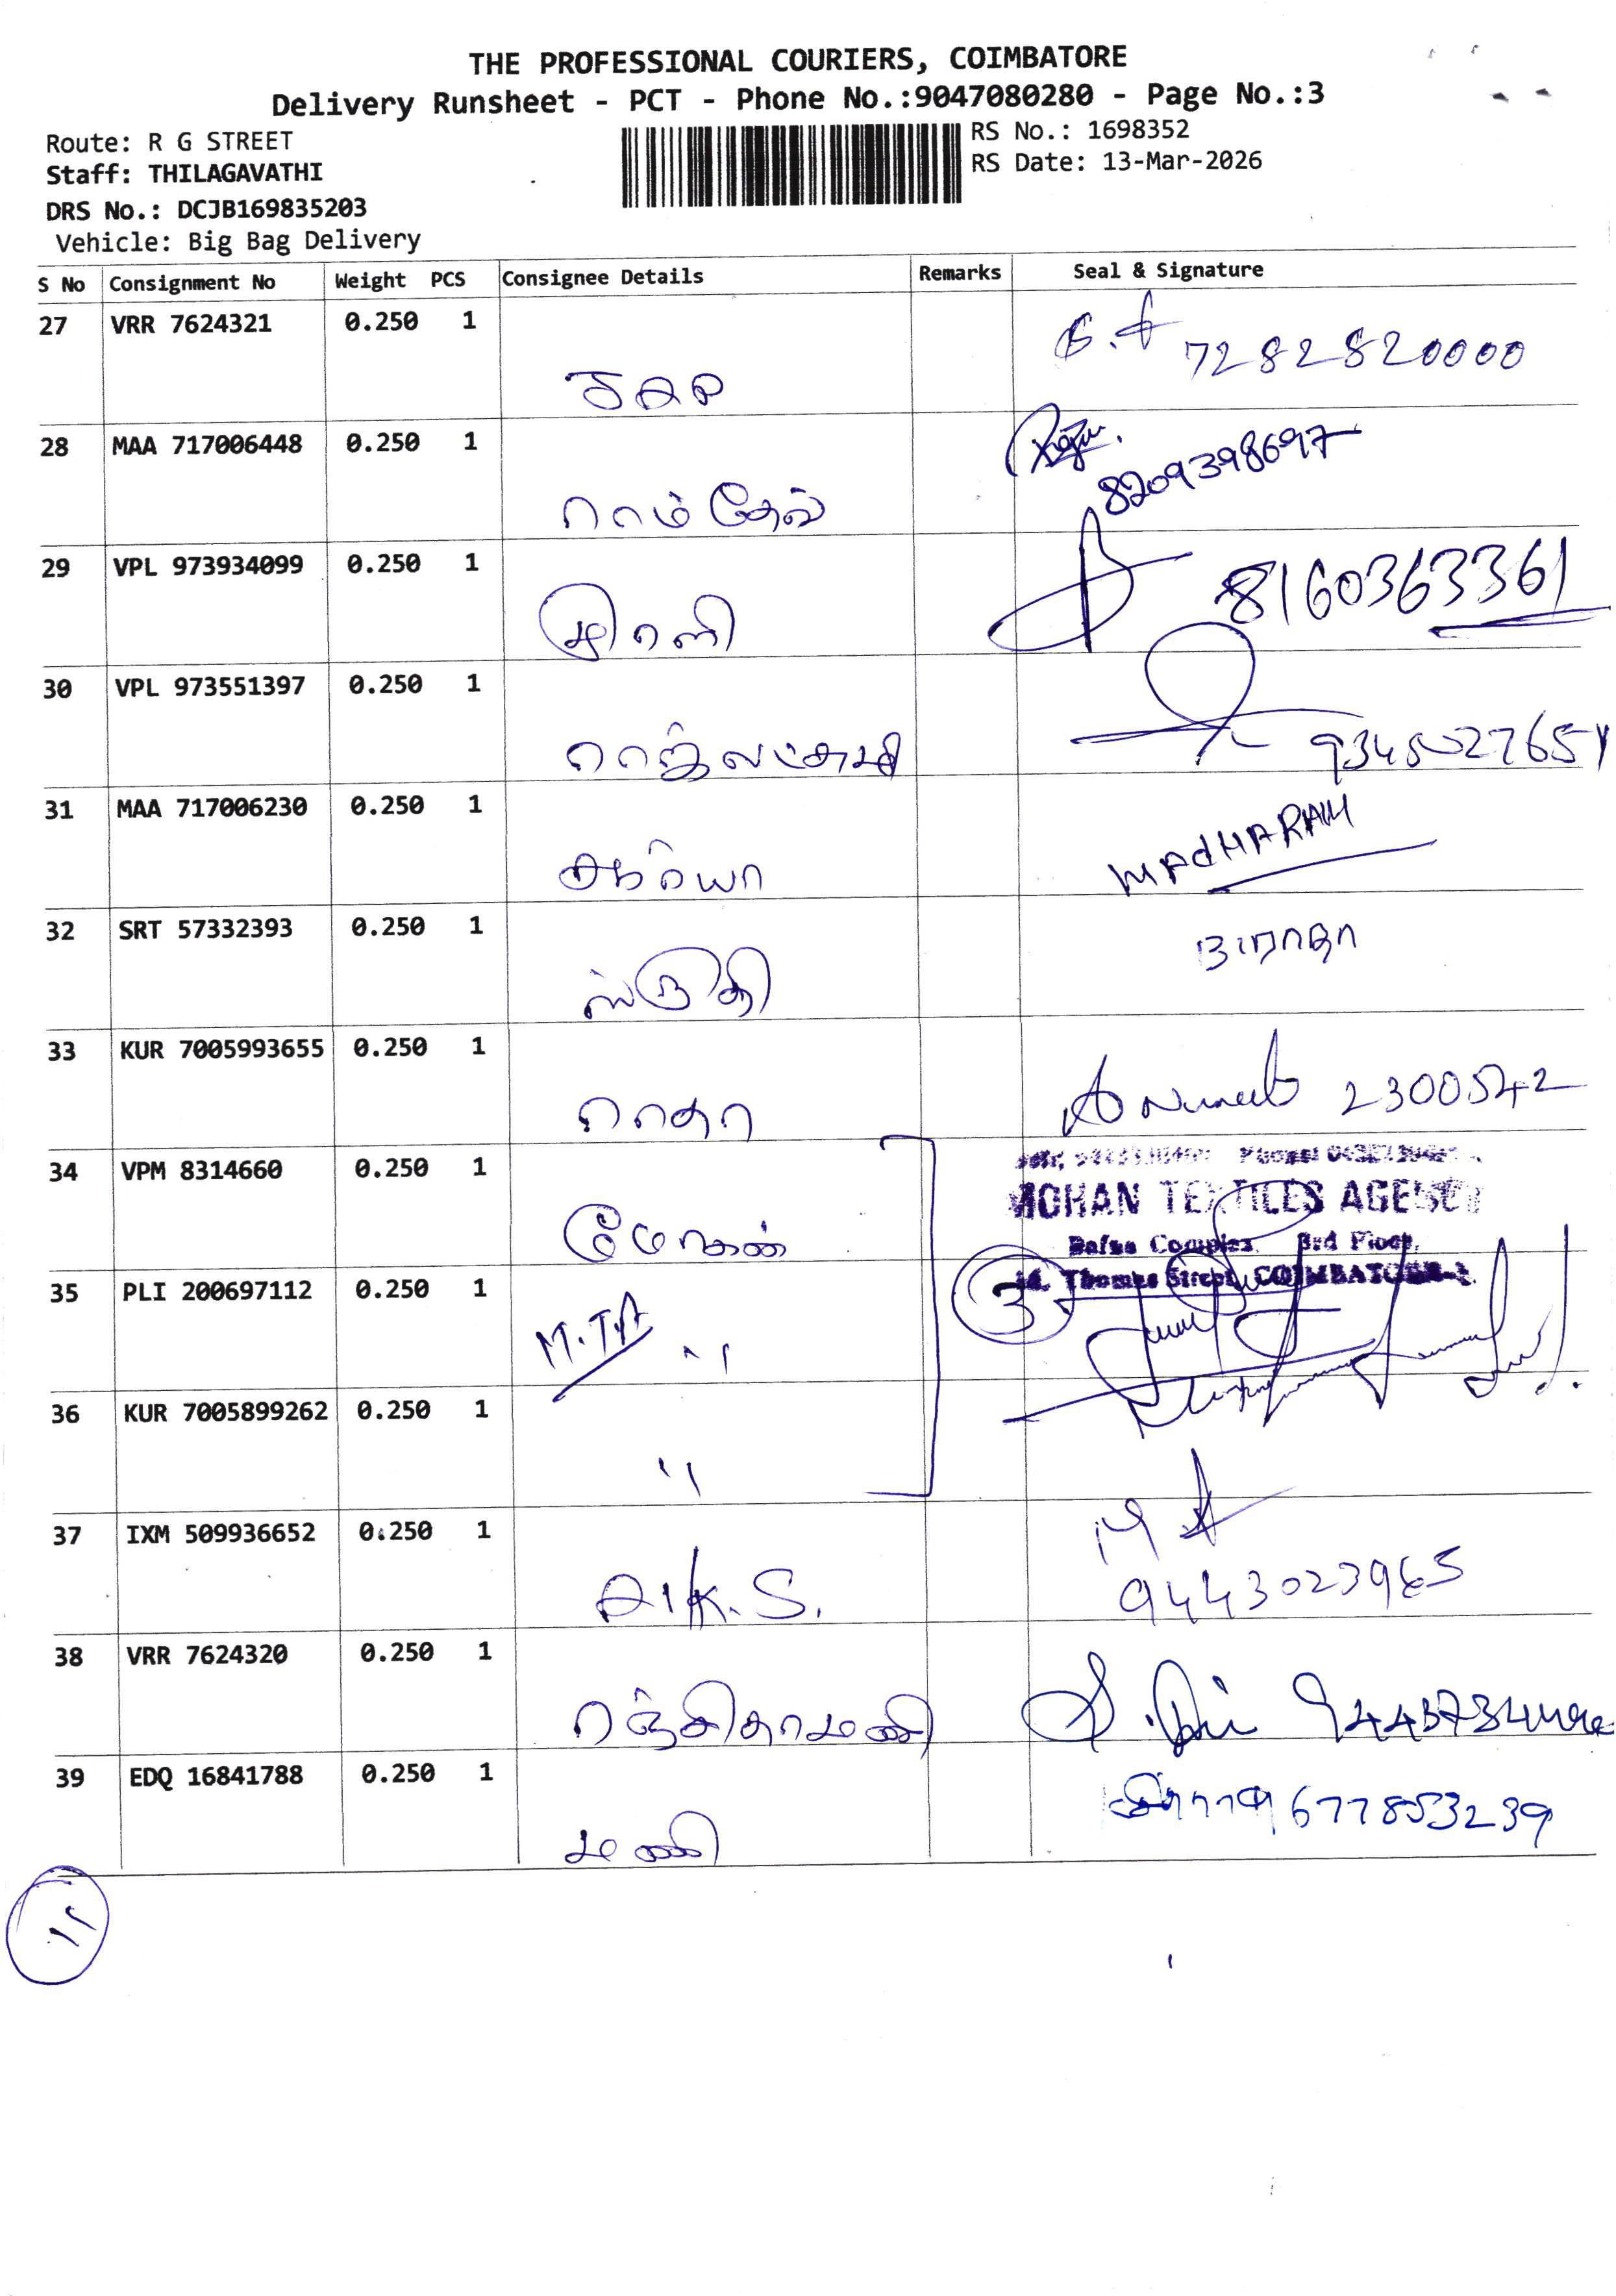 THE PROFESSIONAL COURIERS, COIMBATORE
Delivery Runsheet - PCT - Phone No.:9047080280 - Page No.:3
Route: R G STREET
RS No.: 1698352
Staff: THILAGAVATHI
RS Date: 13-Mar-2026
DRS No.: DCJB169835203
Vehicle: Big Bag Delivery
S No Consignment No Weight PCS Consignee Details Remarks Seal & Signature
27 VRR 7624321 0.250 1
7282820000
28 MAA 717006448 0.250 1
8209398697
ராம்தேவ்
29 VPL 973934099 0.250 1
8160363361
30 VPL 973551397 0.250 1
ராஜலட்சுமி
31 MAA 717006230 0.250 1
MADHARAM
32 SRT 57332393 0.250 1
ஸ்ருதி
33 KUR 7005993655 0.250 1
2300542
ராதா
34 VPM 8314660 0.250 1
MOHAN TEXTILES AGENCY
மோகன்
Complex 3rd Floor,
35 PLI 200697112 0.250 1
14, Thomas Street, COIMBATORE-1
3
M.TA "
36 KUR 7005899262 0.250 1
"
37 IXM 509936652 0.250 1
9443023965
K.S.
38 VRR 7624320 0.250 1
ரஞ்சிதாமணி
39 EDQ 16841788 0.250 1
9677853239
மணி